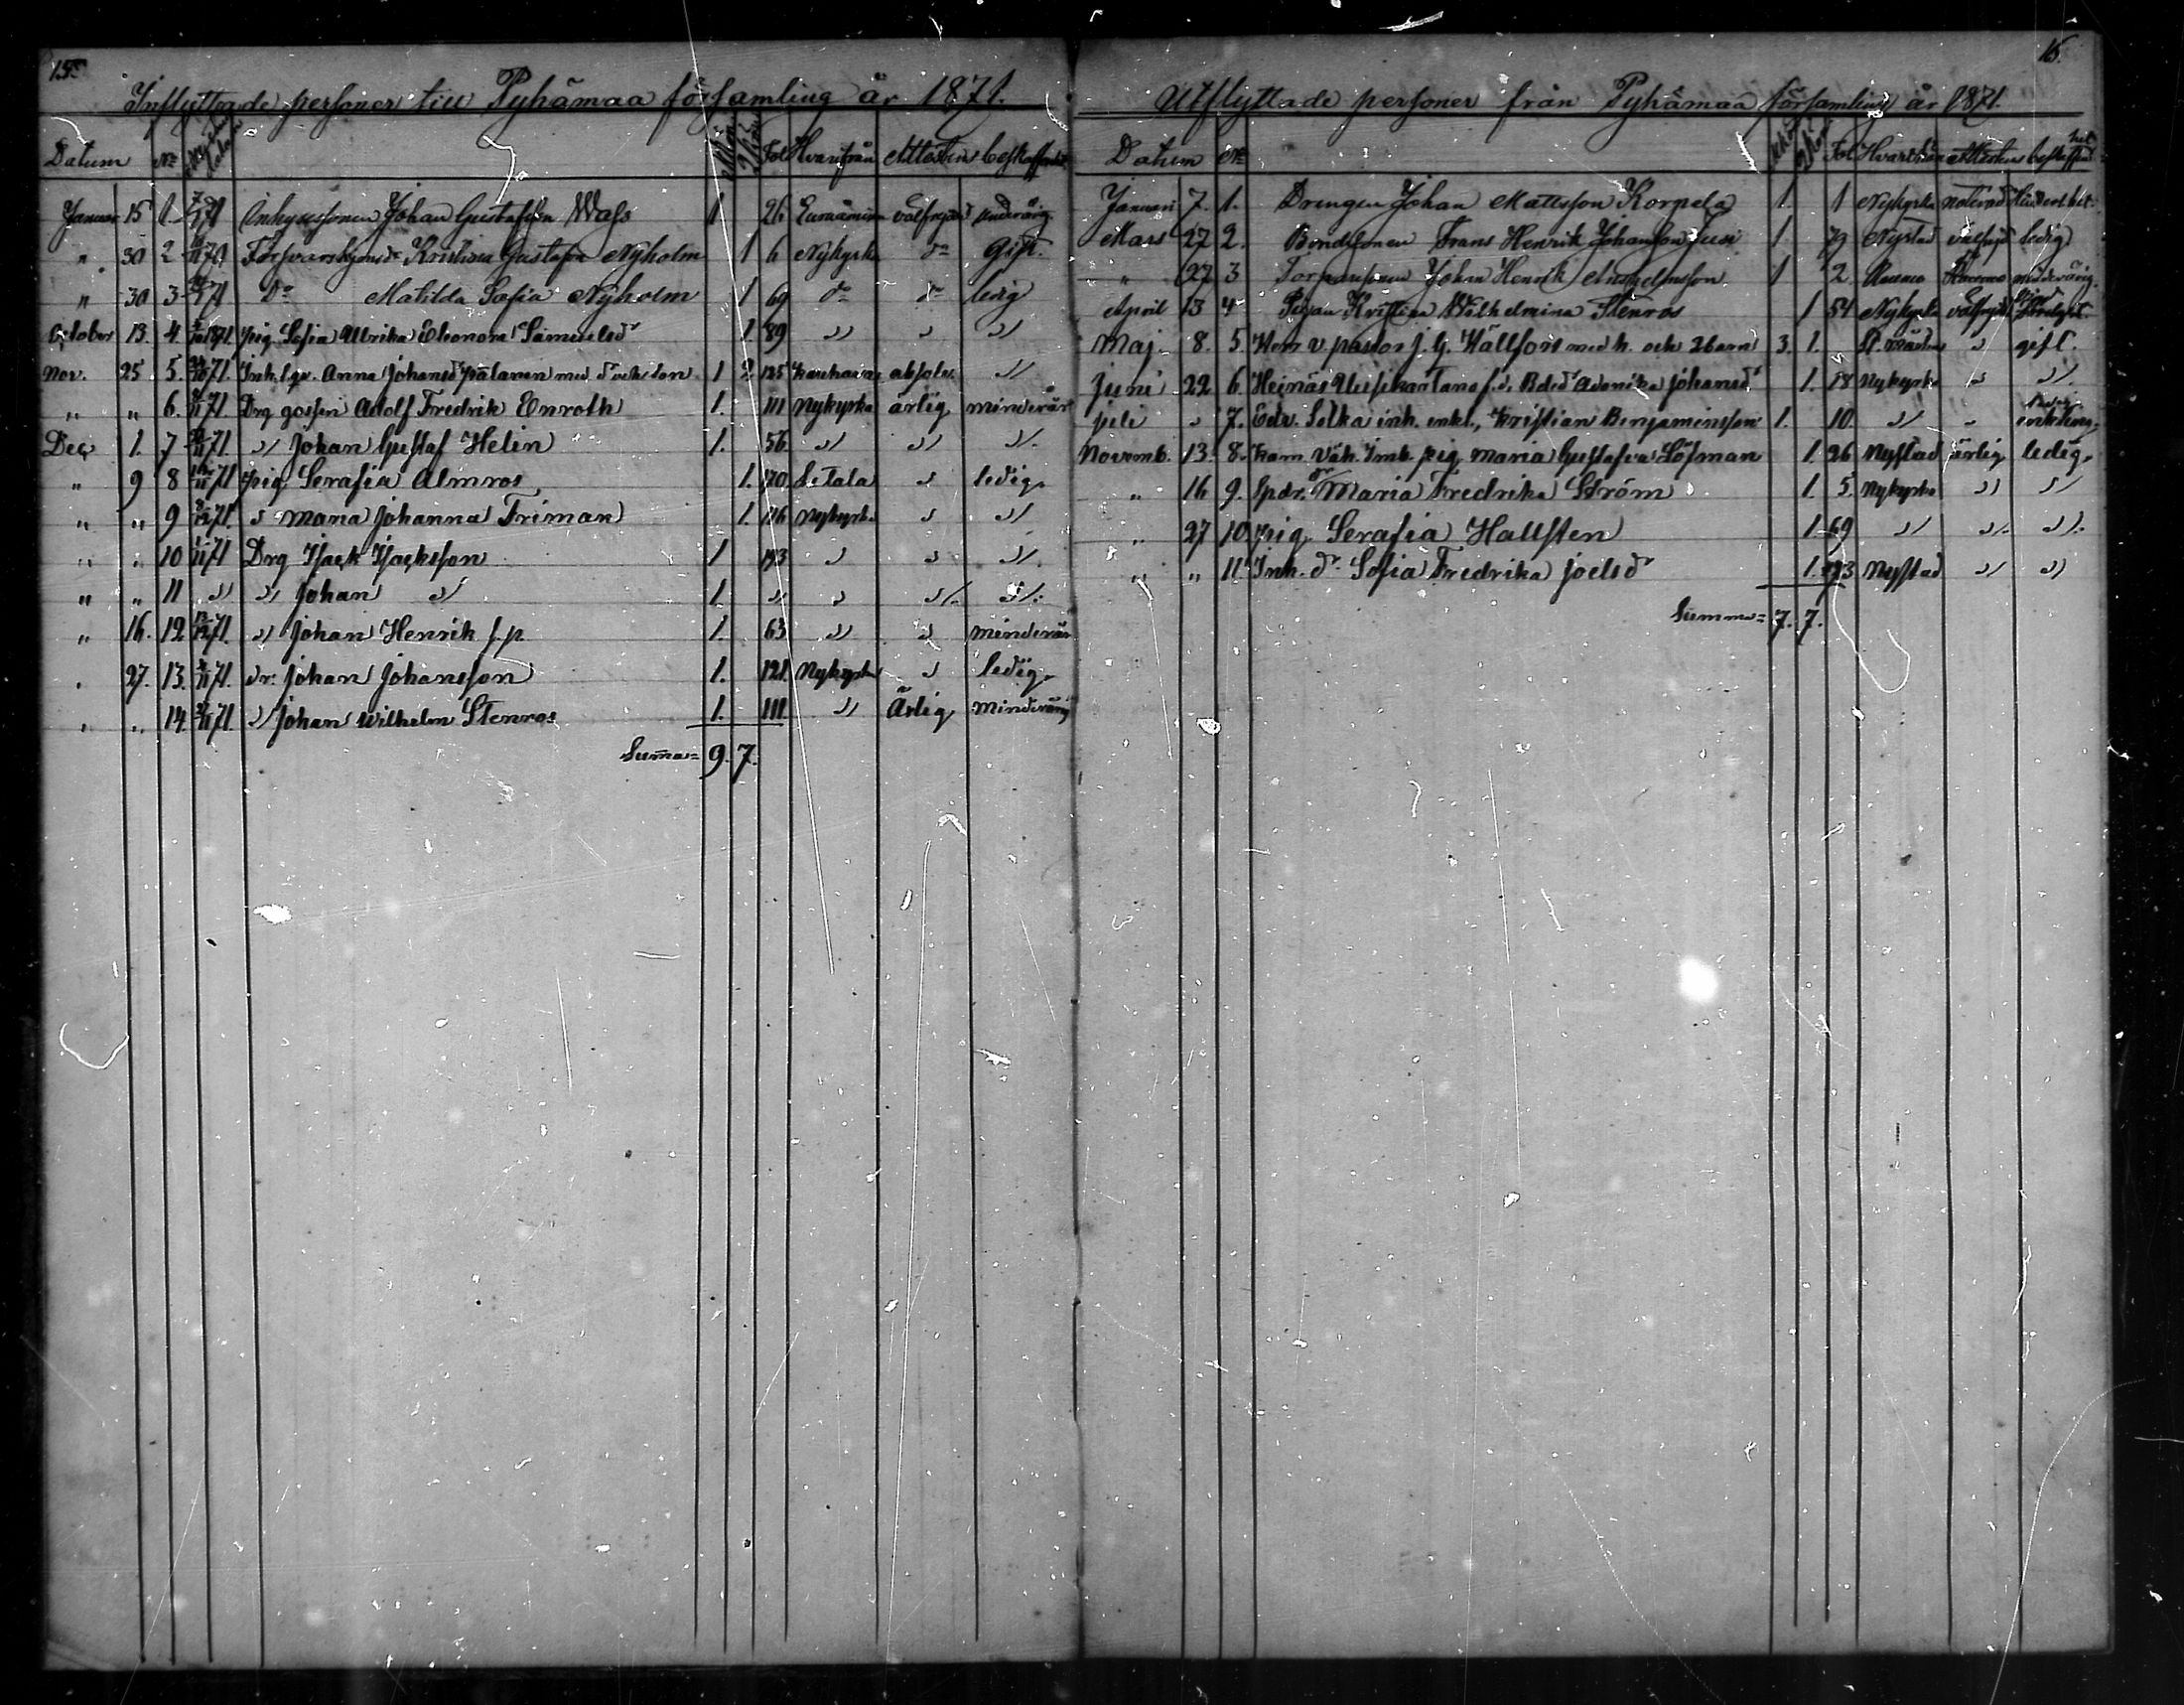 15.
Inflyttade personer till Pyhämaa församling år 1871.
Datum No Mkön Qkön Fol Hvarifrån Attestens beskaffenhet
Januari 15 1. 71 Inhysessonen Johan Gustafsson Wass 1 26 Euraåminne välfrejd minderårig
" 30 2 70 Kristina Gustafva Nyholm 1 6 Nykyrk do Gift.
" 30 3 71 Do Matilda Sofia Nyholm 1 69 do do ledig
October 13. 4. 1871. pig. Sofia Ulrika Eleonora Samuelsdr 1. 89 " " "
Nov. 25 5. 71. Inh. Anna Johansdr Palanen med dr och son 1 2 125 absolv. "
" " 6. 71. Drg gossen Adolf Fredrik Enroth 1. 111 Nykyrka ärlig minderår
Dec. 1. 7 71. " Johan Gustaf Helin 1. 56. " " "
" 9 8 71 pig Serafia Almros 1. 170. Letala " ledig.
" " 9 71. " Maria Johanna Friman 1. 116 Nykyrk. " "
" " 10 71 Drg Isack Isacksson 1 193 " " "
" " 11 " " Johan " 1. " " " "
" 16. 12. 71. " Johan Henrik f.p. 1. 63 " " minderår
" 27. 13. 71. dr. Johan Johansson 1. 121. Nykyrk " ledig.
" " 14. 71. " Johan Wilhelm Stenros 1. 111. " Ärlig Minderårig
Summa= 9. 7.
16.
Utflyttade personer från Pyhämaa församling år 1871.
Datum No Mkön Qkön Fol Attestens beskaffenhet
Januari 7. 1. Drengen Johan Mattsson Korpela 1. 1 Nykyrka
Mars 27 2. Bondsonen Frans Henrik Johansson Jusi 1 79 Nystad välfrejd ledig
" 27 3 Johan Henrik 1 2. Raumo minderårig.
April 13 4 Pigan Kristina Wilhelmina Stenros 1 54 Nykyrka välfrejd
Maj. 8. 5. Hem v. pastor J. G. Hällfors med h. och 2 barn 3. 1. St. Mårtens " gift.
Juni 22 6. Johansdr 1. 18 Nykyrk. " "
Juli " 7. Edv. Silka inh. enkl., Kristian Benjaminsson 1. 10. " "
Novemb. 13. 8. Kam. Väh. Inh. pig Maria Gustafva Löfman 1. 26 Nystad ärlig ledig.
" 16 9. Spdr. dr Maria Fredrika Ström 1. 5. Nykyrka " "
" 27 10. pig. Serafia Hallsten 1. 69 " " "
" " 11. Inh. dr Sofia Fredrika Joelsdr 1. 193 Nystad " "
Summa= 7. 7.